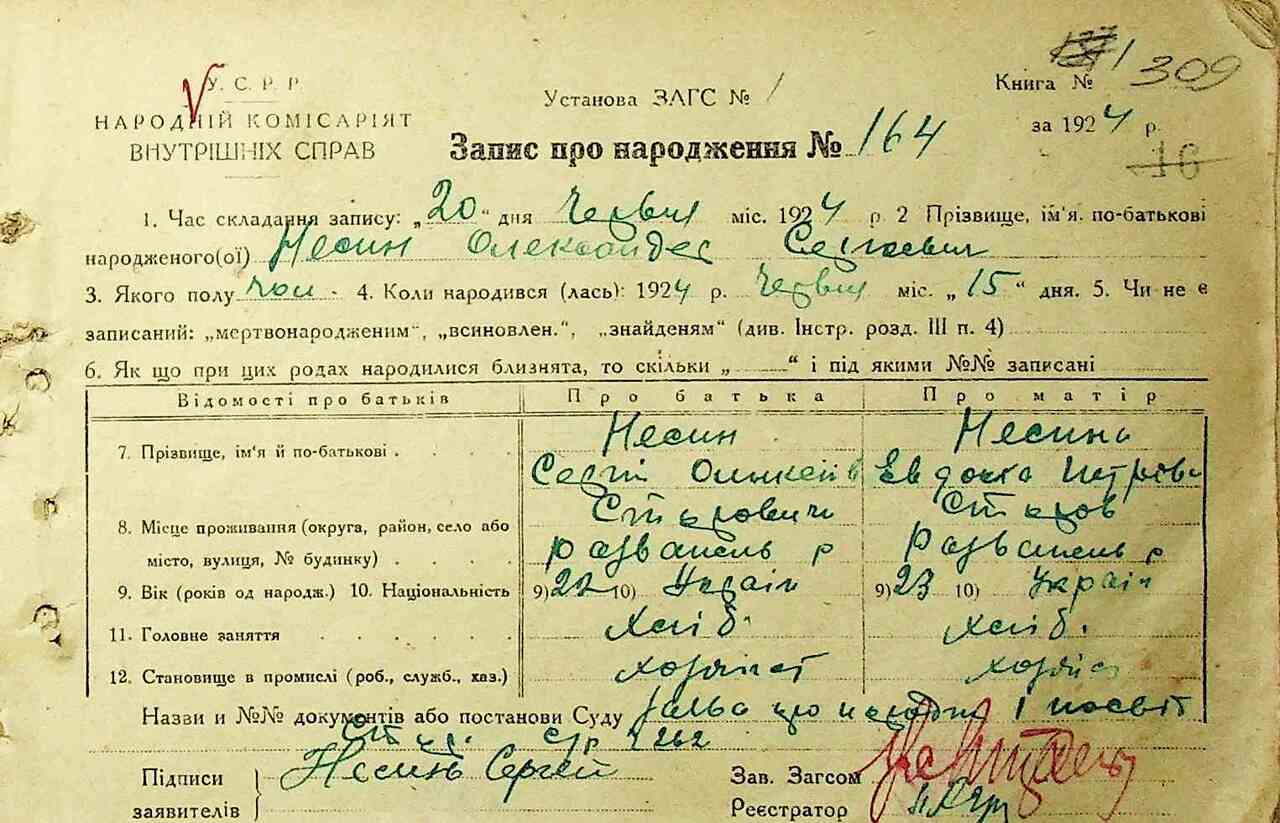 309
У. С. Р. Р.
Установа ЗАГС № 1
Книга №
НАРОДНІЙ КОМІСАРІЯТ
за 1924 р.
ВНУТРІШНІХ СПРАВ
Запис про народження № 164
16
1. Час складання запису: „20“ дня Червня міс. 1924 р. 2 Прізвище, ім'я. по-батькові
народженого(ої) Несин Олександер Сергієвич
3. Якого полу чол. 4. Коли народився (лась): 1924 р. Червня міс. „15“ дня. 5. Чи не є
записаний: „мертвонародженим“, „всиновлен.“, „знайденям“ (див. Інстр. розд. III п. 4)
6. Як що при цих родах народилися близнята, то скільки „ “ і під якими №№ записані
Відомості про батьків Про батька Про матір
7. Прізвище, ім'я й по-батькові Несин Несина
Сергій Евдокія Петрівн
8. Місце проживання (округа, район, село або
місто, вулиця, № будинку)
9. Вік (років од народж.) 10. Національність 9) 22 10) Україн 9) 23 10) Украін
11. Головне заняття Хліб. Хліб.
12. Становище в промислі (роб., служб., хаз.)
Назви и №№ документів або постанови Суду
262
Підписи Несинъ Сергей
Зав. Загсом
заявителів
Реєстратор